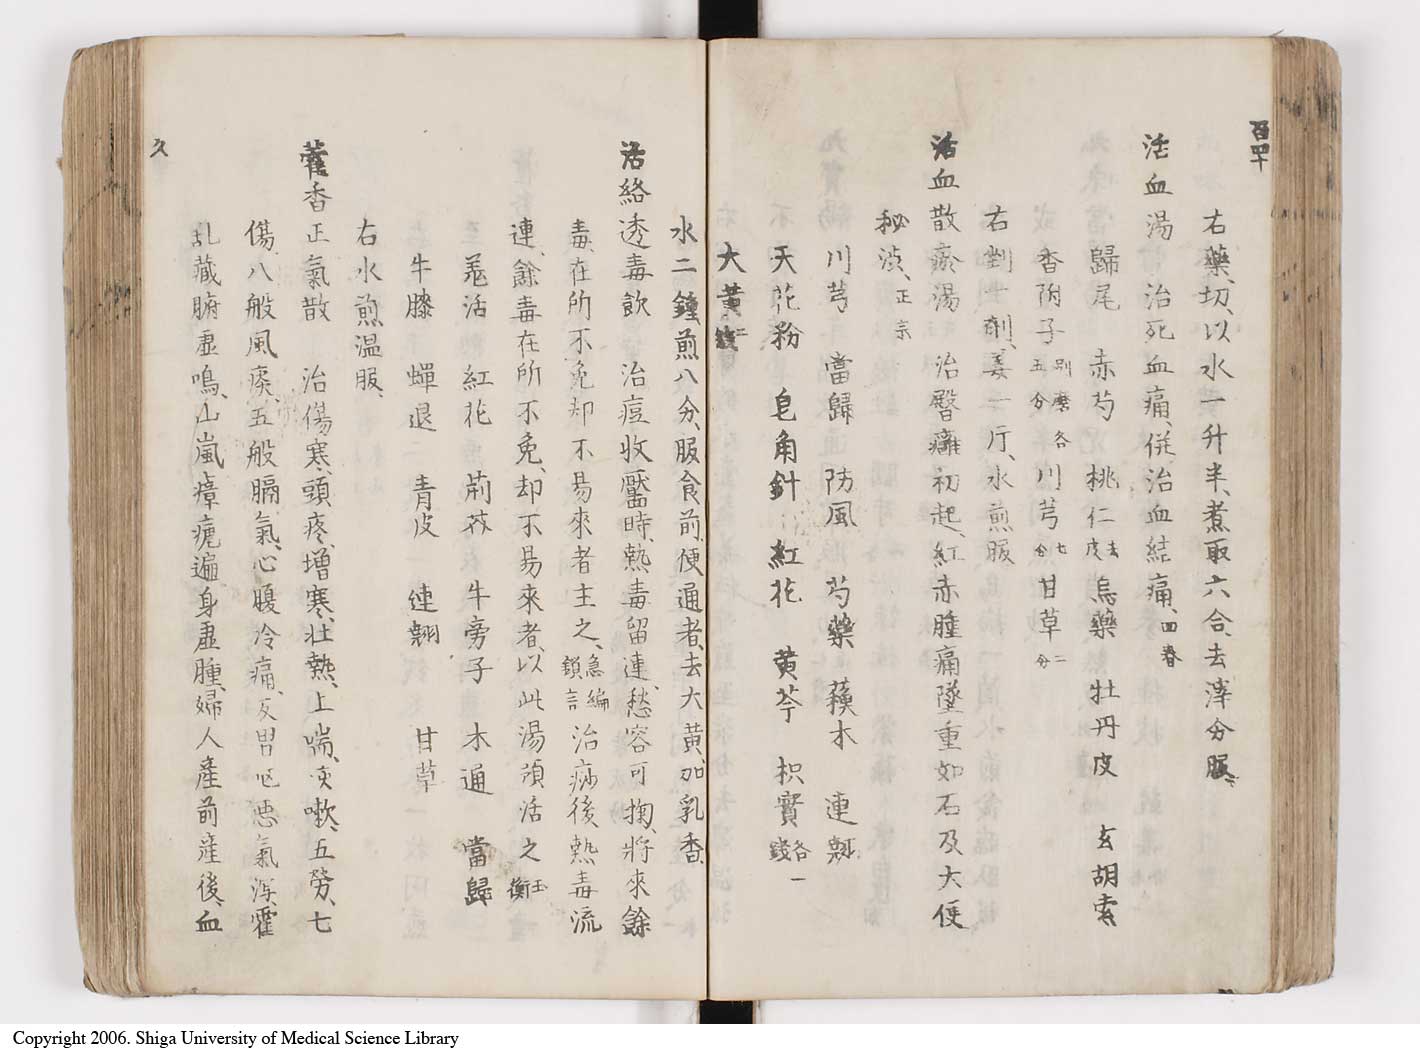 百四十
右藥、切、以水一升半、煮取六合、去滓分服、
活血湯 治死血痛、併治血結痛、回春
歸尾 赤芍 桃仁去皮 烏藥 牡丹皮 玄胡索
香附子別磨各五分 川芎七分 甘草二分
右剉一劑、姜一斤、水煎服
活血散瘀湯 治臀癰初起、紅赤腫痛墜重如石及大便
秘澁、正宗
川芎 當歸 防風 芍藥 蘓木 連翹
天花粉 皂角針 紅花 黄芩 枳實各一錢
大黄二錢
水二鍾、煎八分、服食前、便通者、去大黄、加乳香、
活絡透毒飲 治痘收靨時、熱毒留連、愁容可掬、將來餘
毒、在所不免却不易來者主之、急編鎖言 治痧後熱毒流
連、餘毒在所不免、却不易來者、以此湯預活之玉衡
羗活 紅花 荊芥 牛旁子 木通 當歸
牛膝 蟬退 青皮 連翹 甘草
右水煎温服、
藿香正氣散 治傷寒、頭疼、增寒、壮熱、上喘、咳嗽、五勞、七
傷、八般風痰、五般膈氣、心腹冷痛、反胃嘔悪氣瀉、霍
乱、藏腑虚鳴、山嵐瘴瘧、遍身虚腫、婦人産前産後、血
久